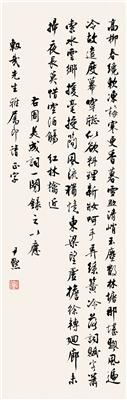 高柳春纔軟凍梅寒更香暮雪助清峭玉塵散林塘那堪飄風遞
冷故遣度幕穿窗似欲料理新妝呵手弄絲簧冷落詞賦客蕭
索水雲鄉援毫授簡風流猶憶東梁望虛檐徐轉迴廊未
掃夜長莫惜空酒觴 紅林擒近
右周美成詞一闋錄之以應
武先生雅屬即請正字
尹默